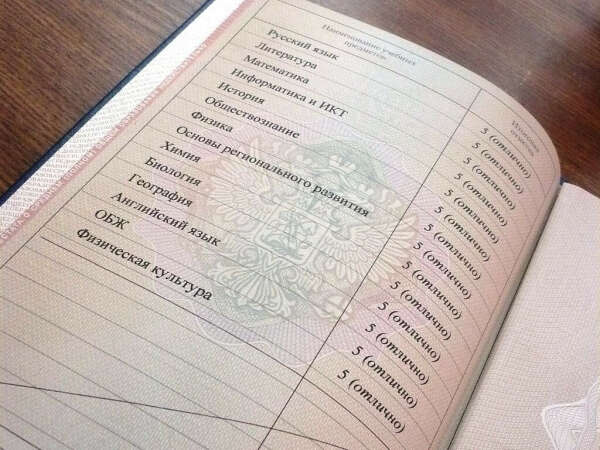 Наименование учебных
предметов
Итоговая
отметка
Русский язык 5 (отлично)
Литература 5 (отлично)
Математика 5 (отлично)
Информатика и ИКТ 5 (отлично)
История 5 (отлично)
Обществознание 5 (отлично)
Физика 5 (отлично)
Основы регионального развития 5 (отлично)
Химия 5 (отлично)
Биология 5 (отлично)
География 5 (отлично)
Английский язык 5 (отлично)
ОБЖ 5 (отлично)
Физическая культура 5 (отлично)